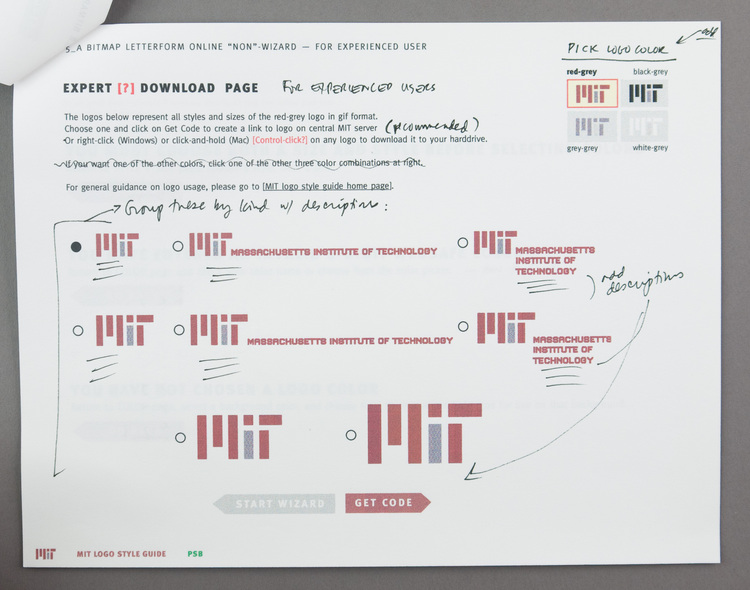 5_A BITMAP LETTERFORM ONLINE "NON"-WIZARD — FOR EXPERIENCED USER
PICK LOGO COLOR
add
EXPERT [?] DOWNLOAD PAGE FOR EXPERIENCED USERS
red-grey black-grey
MIT MIT
MIT MIT
grey-grey white-grey
The logos below represent all styles and sizes of the red-grey logo in gif format.
Choose one and click on Get Code to create a link to logo on central MIT server (recommended)
Or right-click (Windows) or click-and-hold (Mac) [Control-click?] on any logo to download it to your harddrive.
If you want one of the other colors, click one of the other three color combinations at right.
For general guidance on logo usage, please go to [MIT logo style guide home page].
Group these by kind w/ descriptions:
MIT
MIT MASSACHUSETTS INSTITUTE OF TECHNOLOGY
MIT MASSACHUSETTS
INSTITUTE OF
TECHNOLOGY
add
descriptions
MIT
MIT MASSACHUSETTS INSTITUTE OF TECHNOLOGY
MIT MASSACHUSETTS
INSTITUTE OF
TECHNOLOGY
MIT
MIT
START WIZARD GET CODE
MIT MIT LOGO STYLE GUIDE PSB